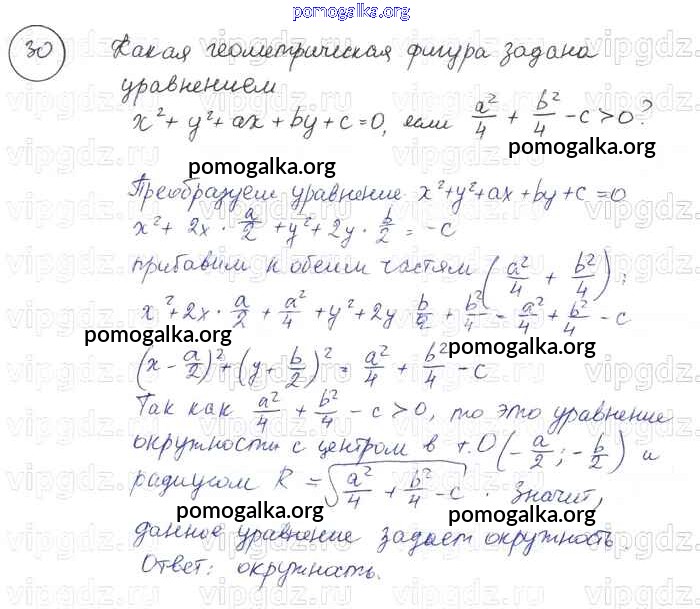 pomogalka.org
30 Какая геометрическая фигура задана
уравнением
x² + y² + ax + by + c = 0, если a²/4 + b²/4 - c > 0?
pomogalka.org
pomogalka.org
Преобразуем уравнение x² + y² + ax + by + c = 0
x² + 2x · a/2 + y² + 2y · b/2 = -c
прибавим к обеим частям (a²/4 + b²/4);
x² + 2x · a/2 + a²/4 + y² + 2y b/2 + b²/4 - a²/4 + b²/4 - c
pomogalka.org
pomogalka.org
(x - a/2)² + (y + b/2)² = a²/4 + b²/4 - c
Так как a²/4 + b²/4 - c > 0, то это уравнение
окружности с центром в т. O (-a/2; -b/2) и
радиусом R = √(a²/4 + b²/4 - c). Значит,
pomogalka.org
pomogalka.org
данное уравнение задает окружность.
Ответ: окружность.